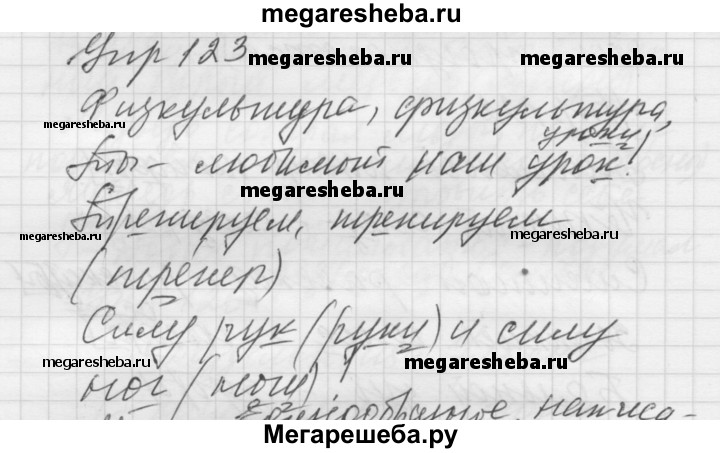 megaresheba.ru
Упр 123 megaresheba.ru megaresheba.ru
Физкультура, физкультура,
megaresheba.ru уроки
Ты - любимый наш урок!
megaresheba.ru
Тренируем, тренируем
megaresheba.ru megaresheba.ru
(тренер)
Силу рук (руки) и силу
megaresheba.ru megaresheba.ru
ног (ноги)
Единообразное написа-
Мегарешеба.ру